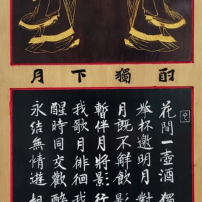 月下獨酌
花間一壺酒 獨
舉杯邀明月 對
月既不解飲 影
暫伴月將影 行
我歌月徘徊 我
醒時同交歡 醉
永結無情遊 相